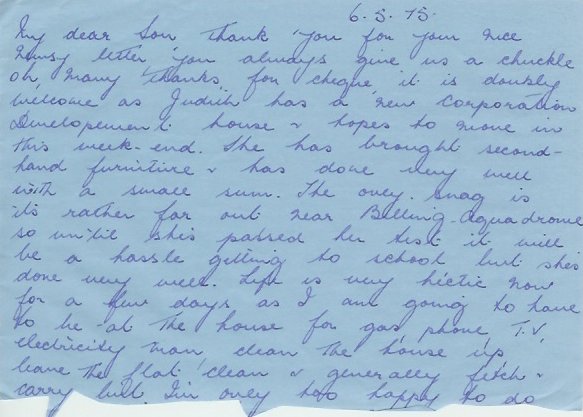 6.5.75.
My dear Son thank you for your nice
newsy letter you always give us a chuckle
oh many thanks for cheque, it is doubly
welcome as Judith has a new Corporation
Developement house & hopes to move in
this week-end. She has brought second-
hand furniture & has done very well
with a small sum. The only snag is
its rather far out near Billing Aquadrome
so until shes passed her test it will
be a hassle getting to school but she's
done very well. Life is very hectic now
for a few days as I am going to have
to be at the house for gas, phone T.V,
electricity man clean the house up,
leave the flat clean & generally fetch &
carry but I'm only too happy to do